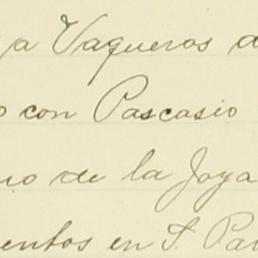 a Vaqueros d
o con Pascasio
io de la Joya
entos en S. Pa